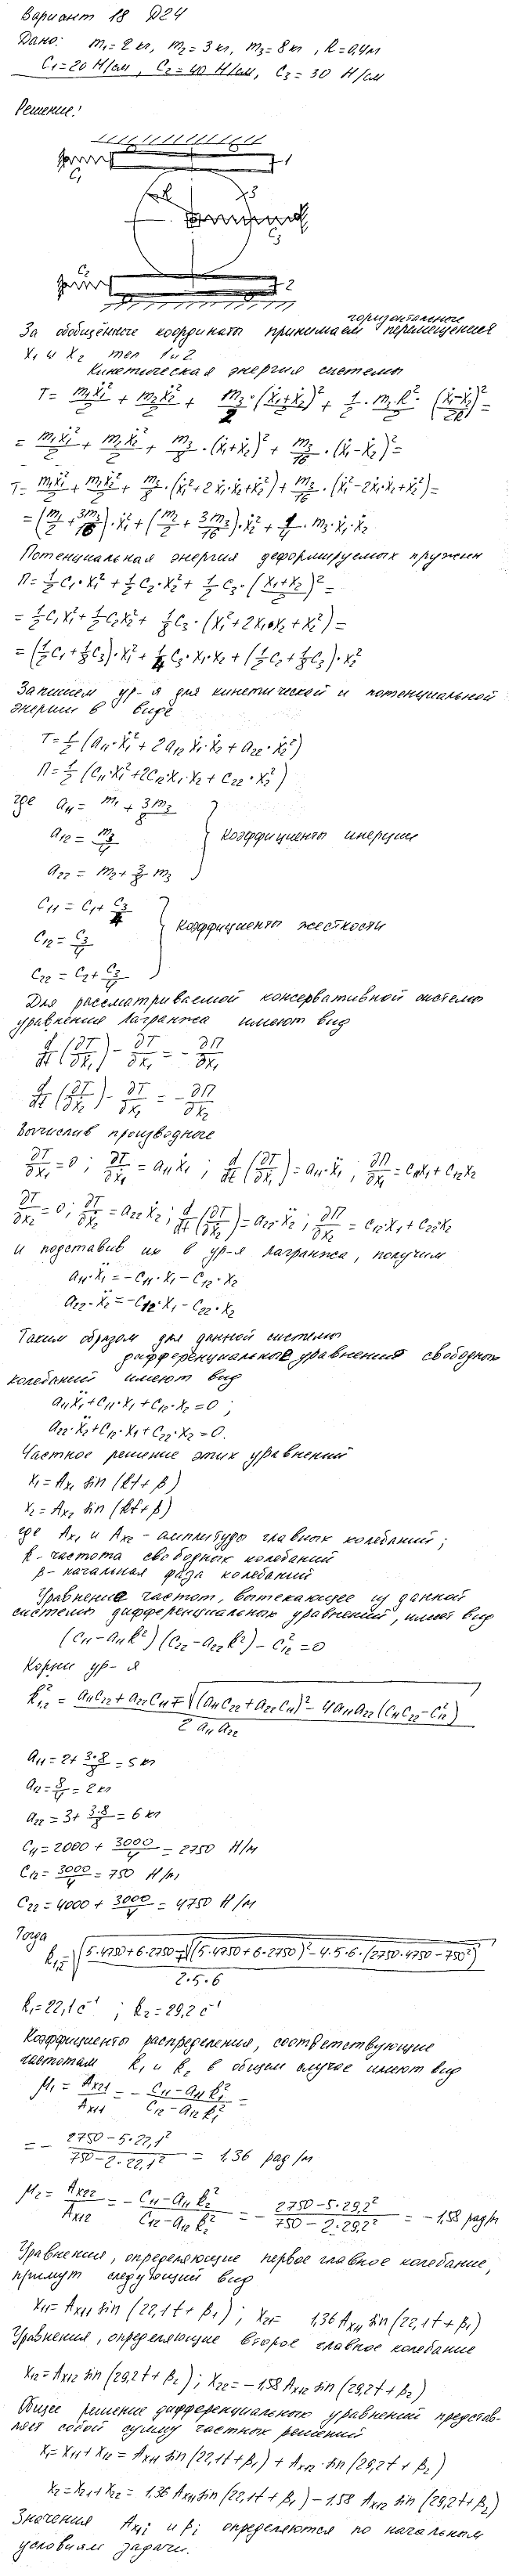 Вариант 18 Д24
Дано: m₁=2 кг, m₂=3 кг, m₃=8 кг, R=0,4м
C₁=20 Н/см, C₂=40 Н/см, C₃=30 Н/см
Решение:
C₁ 1
R 3
C₃
C₂ 2
горизонтальные
За обобщённые координаты принимаем перемещения
x₁ и x₂ тел 1 и 2
Кинетическая энергия системы
T = m₁ẋ₁²/2 + m₂ẋ₂²/2 + m₃/2·(ẋ₁+ẋ₂/2)² + 1/2·m₃·R²/2·(ẋ₁-ẋ₂/2R)² =
= m₁ẋ₁²/2 + m₂ẋ₂²/2 + m₃/8·(ẋ₁+ẋ₂)² + m₃/16·(ẋ₁-ẋ₂)² =
T = m₁ẋ₁²/2 + m₂ẋ₂²/2 + m₃/8·(ẋ₁²+2ẋ₁·ẋ₂+ẋ₂²) + m₃/16·(ẋ₁²-2ẋ₁ẋ₂+ẋ₂²) =
= (m₁/2 + 3m₃/16)·ẋ₁² + (m₂/2 + 3m₃/16)·ẋ₂² + 1/4·m₃·ẋ₁·ẋ₂
Потенциальная энергия деформируемых пружин
П = 1/2 C₁·x₁² + 1/2 C₂·x₂² + 1/2 C₃·(x₁+x₂/2)² =
= 1/2 C₁x₁² + 1/2 C₂x₂² + 1/8 C₃·(x₁²+2x₁·x₂+x₂²) =
= (1/2 C₁ + 1/8 C₃)·x₁² + 1/4 C₃·x₁·x₂ + (1/2 C₂ + 1/8 C₃)·x₂²
Запишем ур-я для кинетической и потенциальной
энергии в виде
T = 1/2 (a₁₁·ẋ₁² + 2a₁₂ẋ₁·ẋ₂ + a₂₂·ẋ₂²)
П = 1/2 (C₁₁·x₁² + 2C₁₂·x₁·x₂ + C₂₂·x₂²)
где a₁₁ = m₁ + 3m₃/8
a₁₂ = m₃/4 } коэффициенты инерции
a₂₂ = m₂ + 3/8 m₃
C₁₁ = C₁ + C₃/4
C₁₂ = C₃/4 } коэффициенты жесткости
C₂₂ = C₂ + C₃/4
Для рассматриваемой консервативной системы
уравнения Лагранжа имеют вид
d/dt (∂T/∂ẋ₁) - ∂T/∂x₁ = - ∂П/∂x₁
d/dt (∂T/∂ẋ₂) - ∂T/∂x₂ = - ∂П/∂x₂
Вычислив производные
∂T/∂x₁ = 0 ; ∂T/∂ẋ₁ = a₁₁ẋ₁ ; d/dt (∂T/∂ẋ₁) = a₁₁·ẍ₁ ; ∂П/∂x₁ = C₁₁x₁ + C₁₂x₂
∂T/∂x₂ = 0 ; ∂T/∂ẋ₂ = a₂₂ẋ₂ ; d/dt (∂T/∂ẋ₂) = a₂₂·ẍ₂ ; ∂П/∂x₂ = C₁₂·x₁ + C₂₂·x₂
и подставив их в ур-я Лагранжа, получим
a₁₁·ẍ₁ = -C₁₁·x₁ - C₁₂·x₂
a₂₂·ẍ₂ = -C₁₂·x₁ - C₂₂·x₂
Таким образом для данной системы
дифференциальные уравнения свободных
колебаний имеют вид
a₁₁ẍ₁ + C₁₁·x₁ + C₁₂·x₂ = 0 ;
a₂₂·ẍ₂ + C₁₂·x₁ + C₂₂·x₂ = 0.
Частное решение этих уравнений
x₁ = Aₓ₁ sin (kt + β)
x₂ = Aₓ₂ sin (kt + β)
где Aₓ₁ и Aₓ₂ - амплитуды главных колебаний ;
k - частота свободных колебаний
β - начальная фаза колебаний
Уравнение частот, вытекающее из данной
системы дифференциальных уравнений, имеют вид
(C₁₁ - a₁₁k²)(C₂₂ - a₂₂k²) - C₁₂² = 0
Корни ур-я
k²₁,₂ = a₁₁C₂₂ + a₂₂C₁₁ ∓ √((a₁₁C₂₂ + a₂₂C₁₁)² - 4a₁₁a₂₂(C₁₁C₂₂ - C₁₂²)) / 2 a₁₁a₂₂
a₁₁ = 2 + 3·8/8 = 5 кг
a₁₂ = 8/4 = 2 кг
a₂₂ = 3 + 3·8/8 = 6 кг
C₁₁ = 2000 + 3000/4 = 2750 Н/м
C₁₂ = 3000/4 = 750 Н/м
C₂₂ = 4000 + 3000/4 = 4750 Н/м
Тогда
k₁,₂ = √(5·4750 + 6·2750 ∓ √((5·4750 + 6·2750)² - 4·5·6·(2750·4750 - 750²)) / 2·5·6)
k₁ = 22,1 с⁻¹ ; k₂ = 29,2 с⁻¹
Коэффициенты распределения, соответствующие
частотам k₁ и k₂ в общем случае имеют вид
μ₁ = Aₓ₂₁/Aₓ₁₁ = - C₁₁ - a₁₁k₁²/C₁₂ - a₁₂k₁² =
= - 2750 - 5·22,1²/750 - 2·22,1² = 1,36 рад/м
μ₂ = Aₓ₂₂/Aₓ₁₂ = - C₁₁ - a₁₁k₂²/C₁₂ - a₁₂k₂² = - 2750 - 5·29,2²/750 - 2·29,2² = -1,58 рад/м
Уравнения, определяющие первое главное колебание,
примут следующий вид
x₁₁ = Aₓ₁₁ sin (22,1t + β₁) ; x₂₁ = 1,36 Aₓ₁₁ sin (22,1t + β₁)
Уравнения, определяющие второе главное колебание
x₁₂ = Aₓ₁₂ sin (29,2t + β₂) ; x₂₂ = -1,58 Aₓ₁₂ sin (29,2t + β₂)
Общее решение дифференциальных уравнений представ-
ляет собой сумму частных решений
x₁ = x₁₁ + x₁₂ = Aₓ₁₁ sin (22,1t + β₁) + Aₓ₁₂ · sin (29,2t + β₂)
x₂ = x₂₁ + x₂₂ = 1,36 Aₓ₁₁ sin (22,1t + β₁) - 1,58 Aₓ₁₂ sin (29,2t + β₂)
Значения Aₓᵢ и βᵢ определяются по начальным
условиям задачи.